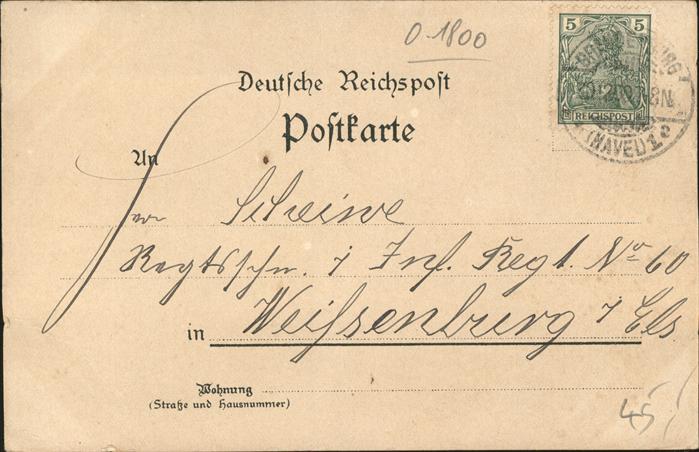 0-1800
5 5
REICHSPOST
BRANDENBURG
(HAVEL) 1 e
Deutsche Reichspost
Postkarte
An
Regtsschr. i Inf. Regt. No 60
in Weißenburg i Els
Wohnung
(Straße und Hausnummer)
45,-